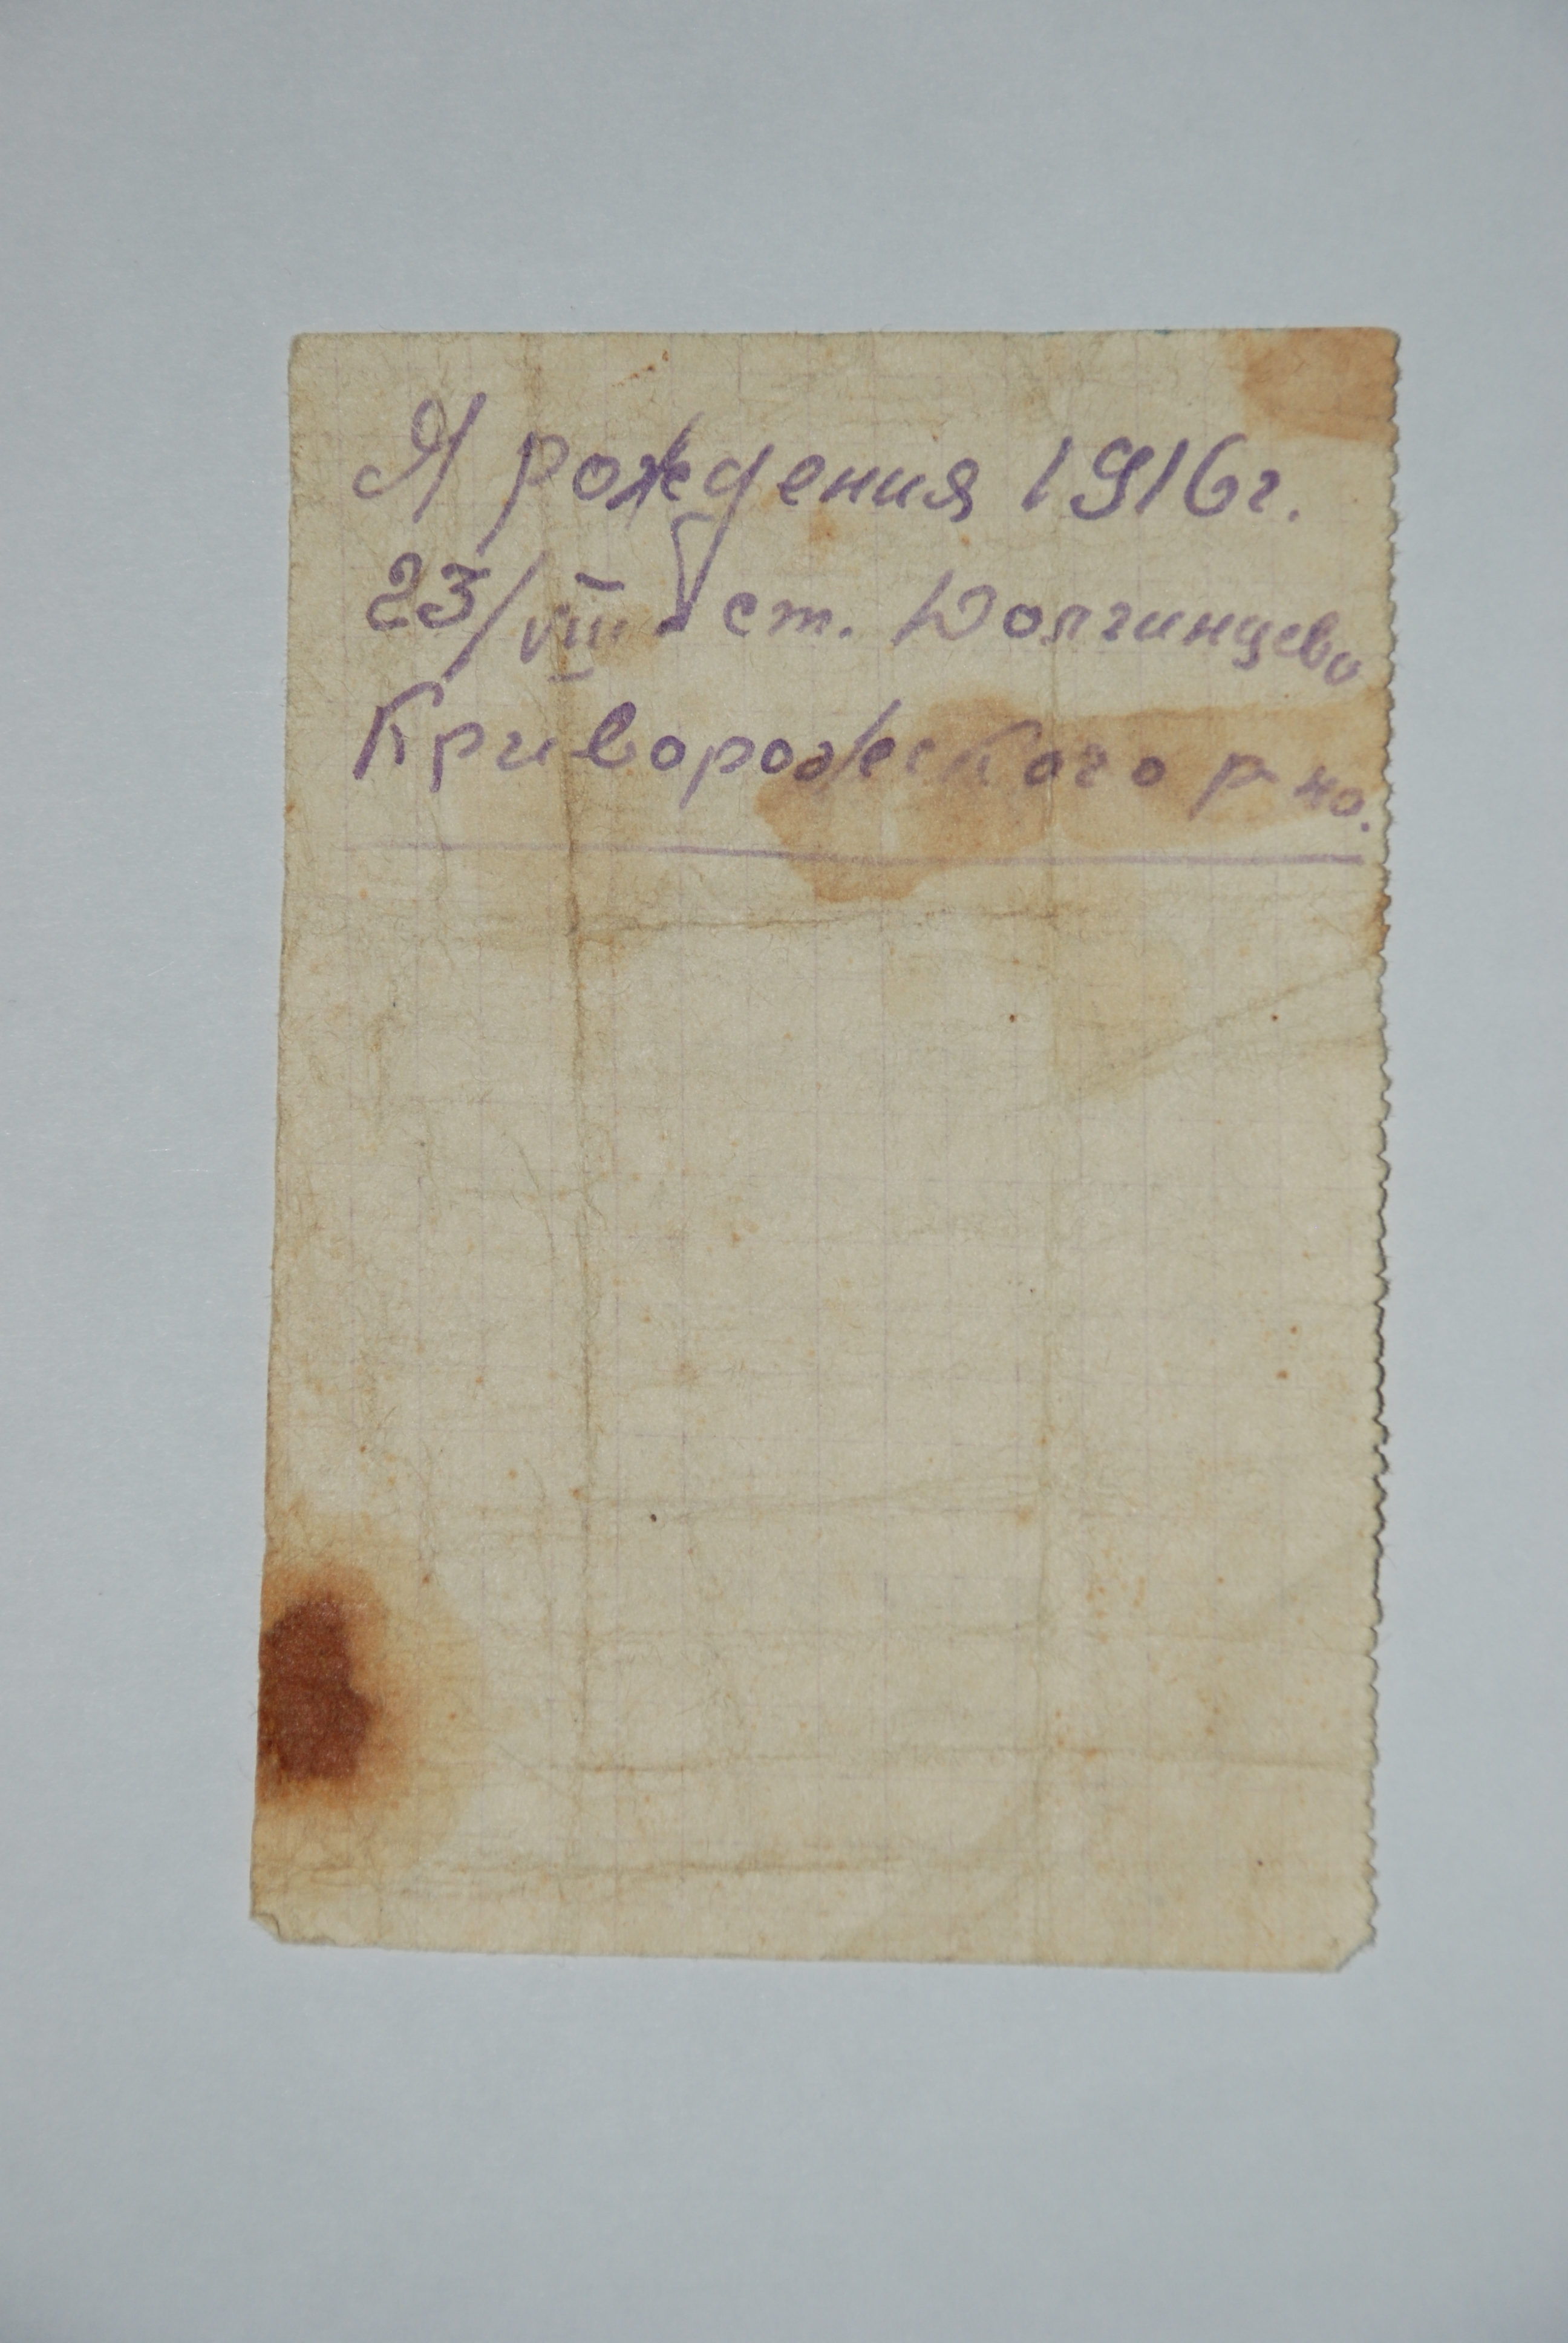 Я рождения 1916г.
23/VIII ст. Долгинцево
Криворожского р-но.